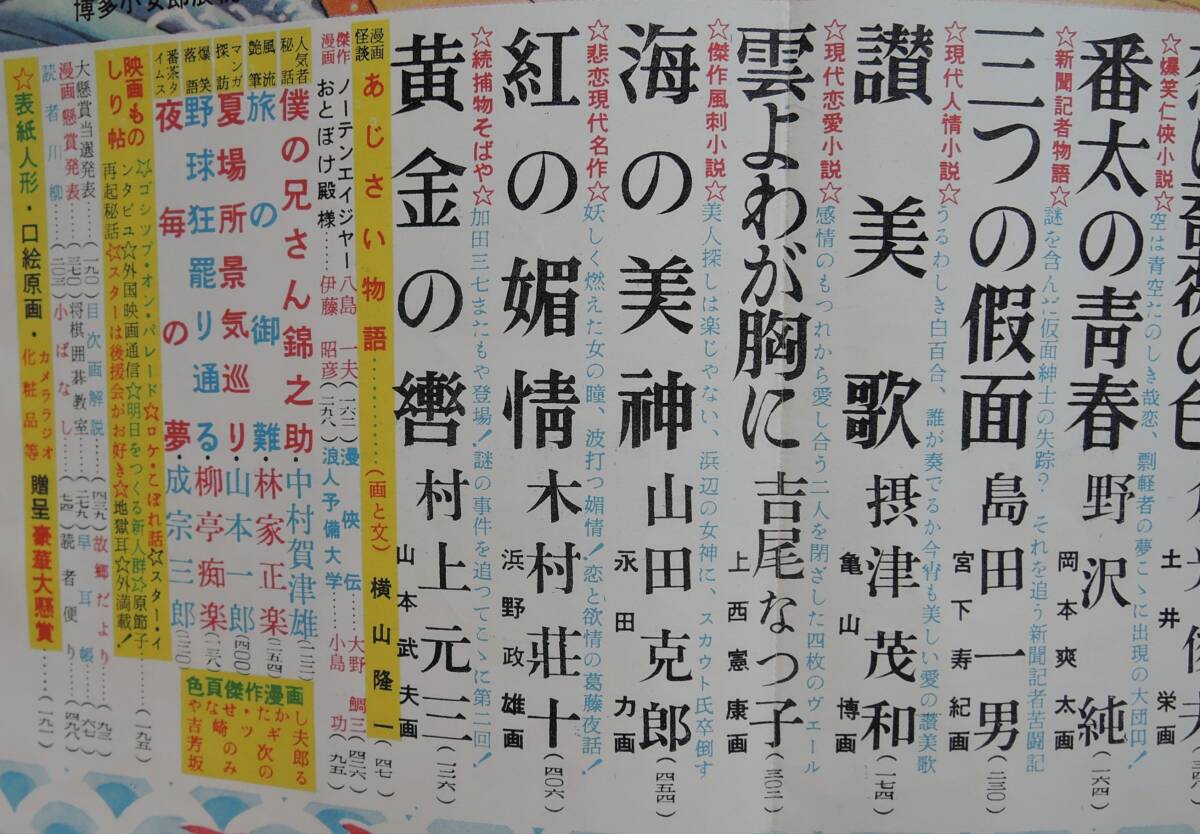 ☆爆笑仁侠小説☆
空は青空たのしき哉恋、剽軽者の夢こゝに出現の大団円！
土井栄画
番太の青春
野沢純
(一六四)
☆新聞記者物語☆
謎を含んだ仮面紳士の失踪？それを追う新聞記者苦闘記
岡本爽太画
三つの假面
島田一男
(二三〇)
☆現代人情小説☆
うるわしき白百合、誰が奏でるか今宵も美しい愛の讃美歌
宮下寿紀画
讃美歌
摂津茂和
(一七四)
☆現代恋愛小説☆
感情のもつれから愛し合う二人を閉ざした四枚のヴェール
亀山博画
雲よわが胸に
吉尾なつ子
(三〇二)
☆傑作風刺小説☆
美人探しは楽じゃない、浜辺の女神に、スカウト氏卒倒す
上西憲康画
海の美神
山田克郎
(四五四)
☆悲恋現代名作☆
妖しく燃えた女の瞳、波打つ媚情！恋と欲情の葛藤夜話！
永田力画
紅の媚情
木村荘十
(四〇六)
☆続捕物そばや☆
加田三七またもや登場！謎の事件を追つてこゝに第二回！
浜野政雄画
黄金の轡
村上元三
(一三六)
山本武夫画
漫画怪談
あじさい物語………(画と文)横山隆一(四七)
傑作漫画
ノーテンエイジャー………八島一夫(一六二)
おとぼけ殿様………伊藤昭彦(二九八)
漫俠伝………大野鯛三(四二六)
浪人予備大学………小島功(九五)
人気者秘話
僕の兄さん錦之助・中村賀津雄(一二二)
風流艶筆
旅の御難・林家正楽(二五四)
マンガ探訪
夏場所景気巡り・山本一郎(四〇〇)
爆笑落語
野球狂罷り通る・柳亭痴楽(二三八)
番茶タイムス
夜毎の夢・成宗三郎(二二〇)
色頁傑作漫画
やなせ・たかし
映画ものしり帖
☆ゴシップ・オン・パレード☆ロケ・こぼれ話☆スター・インタビュ☆外国映画通信☆明日をつくる新人群☆原節子再起秘話☆スターは後援会がお好き☆地獄耳☆外満載！………(一九五)
大懸賞当選発表………(一九〇)
漫画懸賞発表………(三七〇)
読者川柳………(二〇三)
目次画解説………(四三九)
将棋囲碁教室………(二七九)
小ばなし………(七四)
故郷だより………(九三)
早耳帳………(六七)
読者便り………(四九八)
☆表紙人形・口絵原画・カメララジオ化粧品等贈呈豪華大懸賞………(一九一)